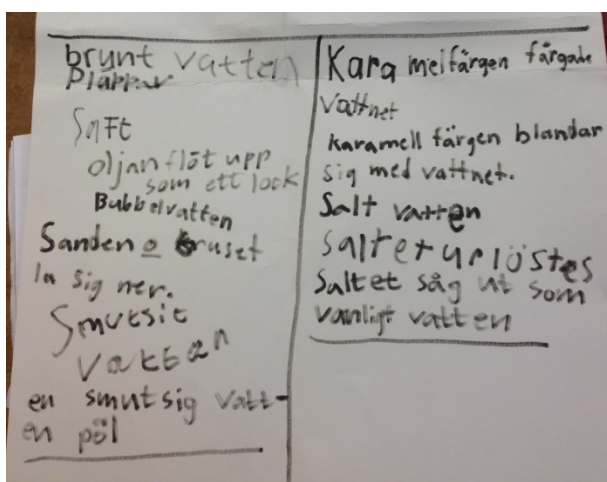 brunt vatten
Plåppar
Saft
oljan flöt upp
som ett lock
Bubbelvatten
Sanden o gruset
la sig ner.
Smutsit
vattan
en smutsig vatt-
en pöl
Karamelfärgen färgade
vattnet
karamell färgen blandar
sig med vattnet.
Salt vatten
salteturlöstes
Saltet såg ut som
vanligt vatten